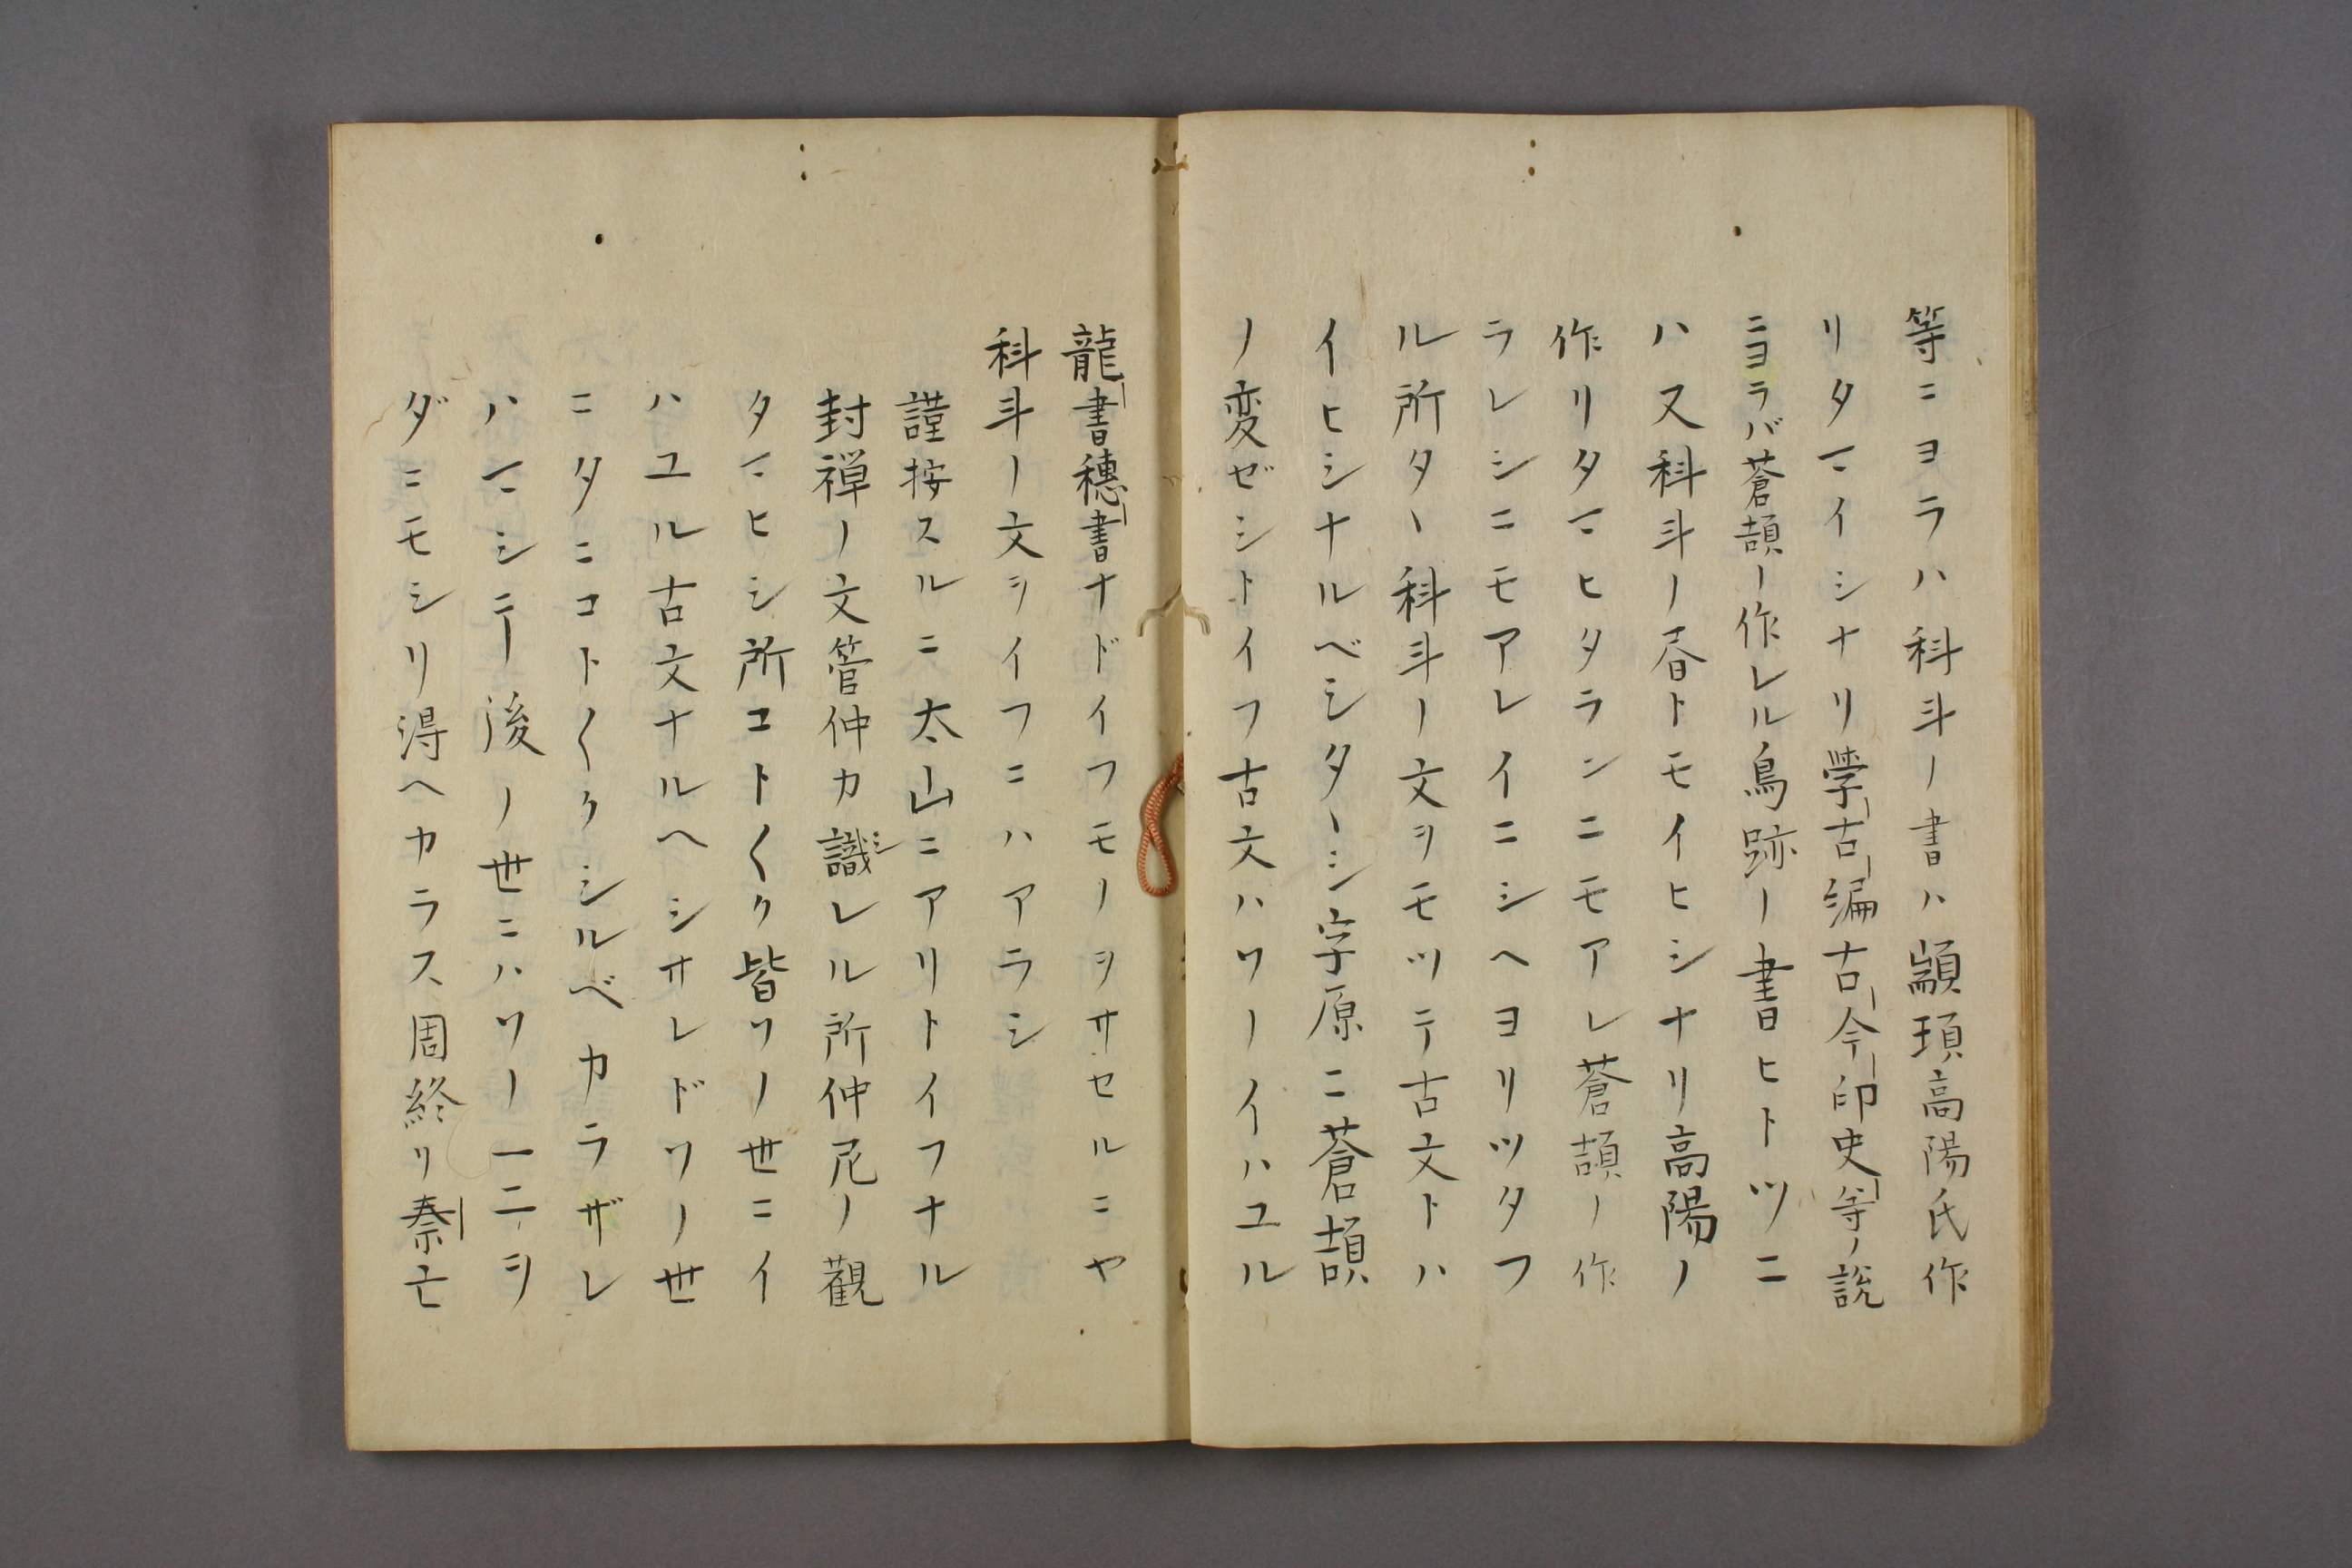 等ニヨラハ科斗ノ書ハ顓頊高陽氏作
リタマイシナリ學古編古今印史等ノ説
ニヨラバ蒼頡ノ作レル鳥跡ノ書ヒトツニ
ハ又科斗ノ舂トモイヒシナリ高陽ノ
作リタマヒタランニモアレ蒼頡ノ作
ラレシニモアレイニシヘヨリツタフ
ル所タヽ科斗ノ文ヲモツテ古文トハ
イヒシナルベシタヽシ字原ニ蒼頡
ノ変ゼシトイフ古文ハソノイハユル
龍書穗書ナドイフモノヲサセルニヤ
科斗ノ文ヲイフニハアラシ
謹按スルニ太山ニアリトイフナル
封禅ノ文管仲カ識シレル所仲尼ノ觀
タマヒシ所コト〱ク皆ソノ世ニイ
ハユル古文ナルヘシサレドソノ世
ニタニコト〱クシルベカラザレ
ハマシテ後ノ世ニハソノ一二ヲ
ダニモシリ得ヘカラス周終リ秦亡